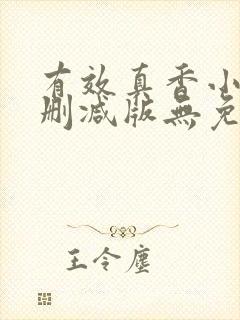 有效真香小
删减版無免
王令塵